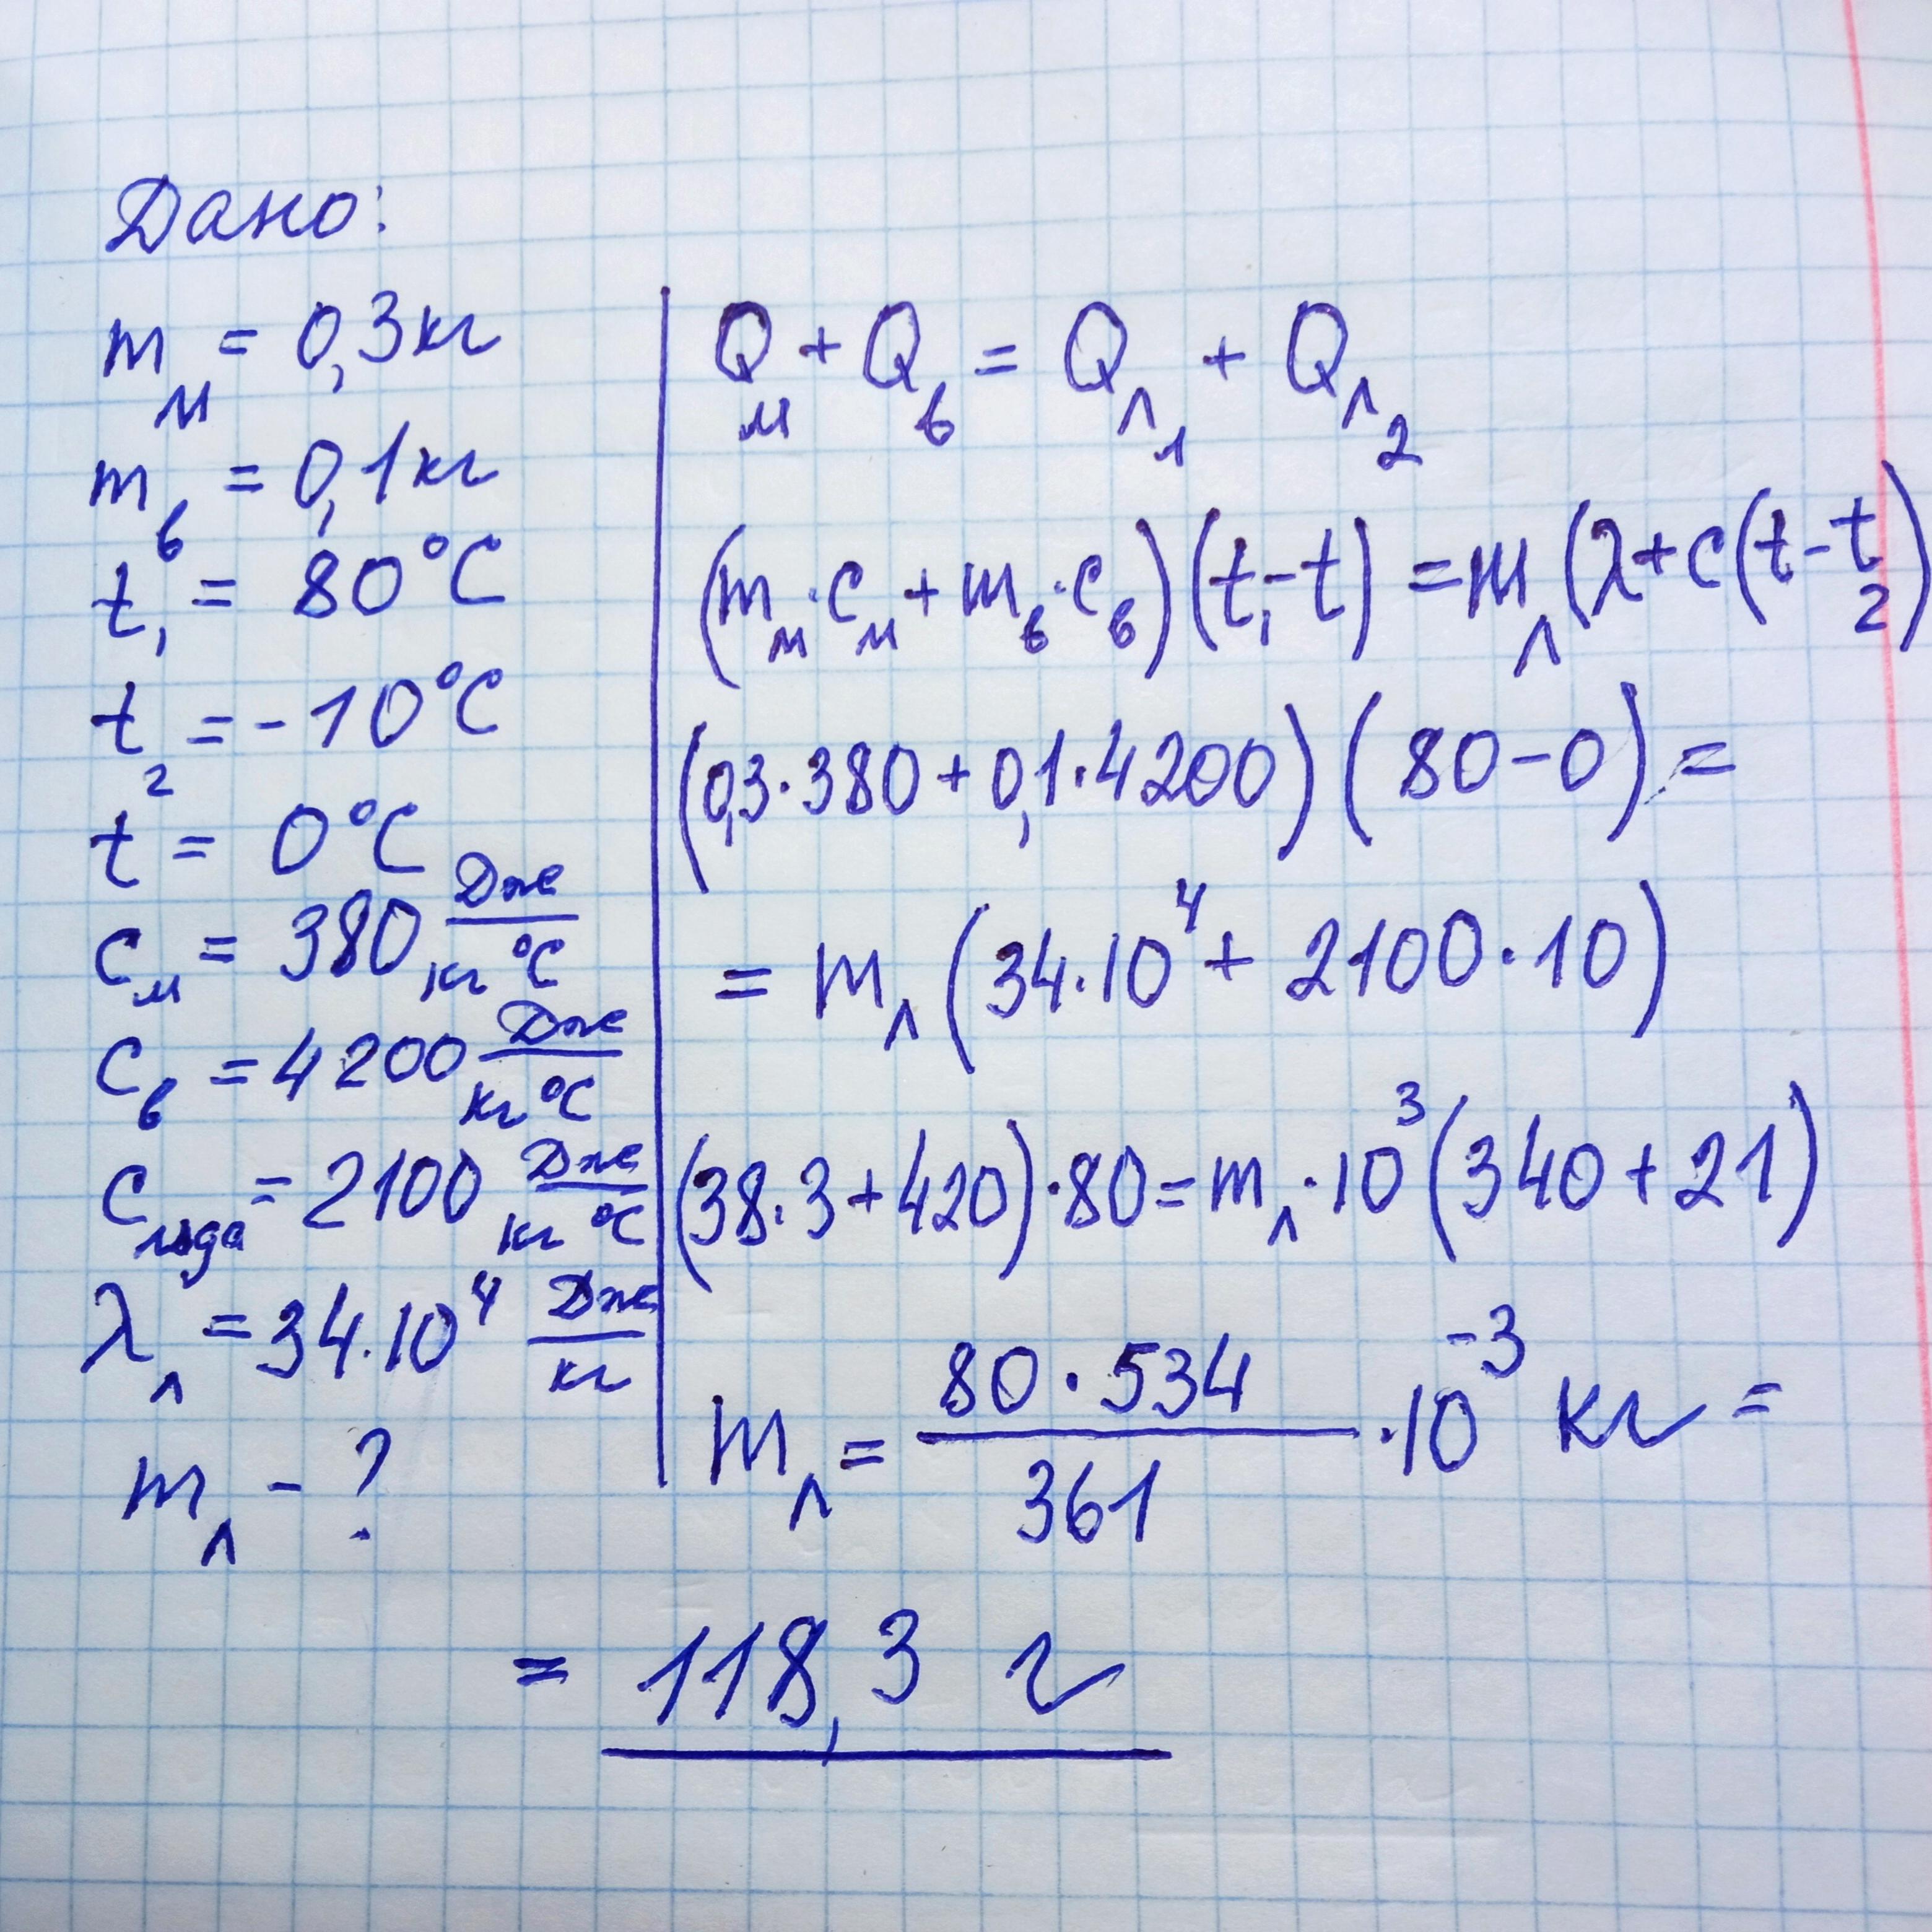 Дано:
m_м = 0,3 кг
m_в = 0,1 кг
t₁ = 80°C
t₂ = -10°C
t = 0°C
c_м = 380 Дж/кг °C
c_в = 4200 Дж/кг °C
c_льда = 2100 Дж/кг °C
λ_л = 34·10⁴ Дж/кг
m_л - ?
Q_м + Q_в = Q_л₁ + Q_л₂
(m_м·c_м + m_в·c_в)(t₁-t) = m_л(λ+c(t-t₂)
(0,3·380+0,1·4200)(80-0) =
= m_л(34·10⁴+ 2100·10)
(38·3+420)·80=m_л·10³(340+21)
m_л = 80·534/361 ·10⁻³ кг =
= 118,3 г